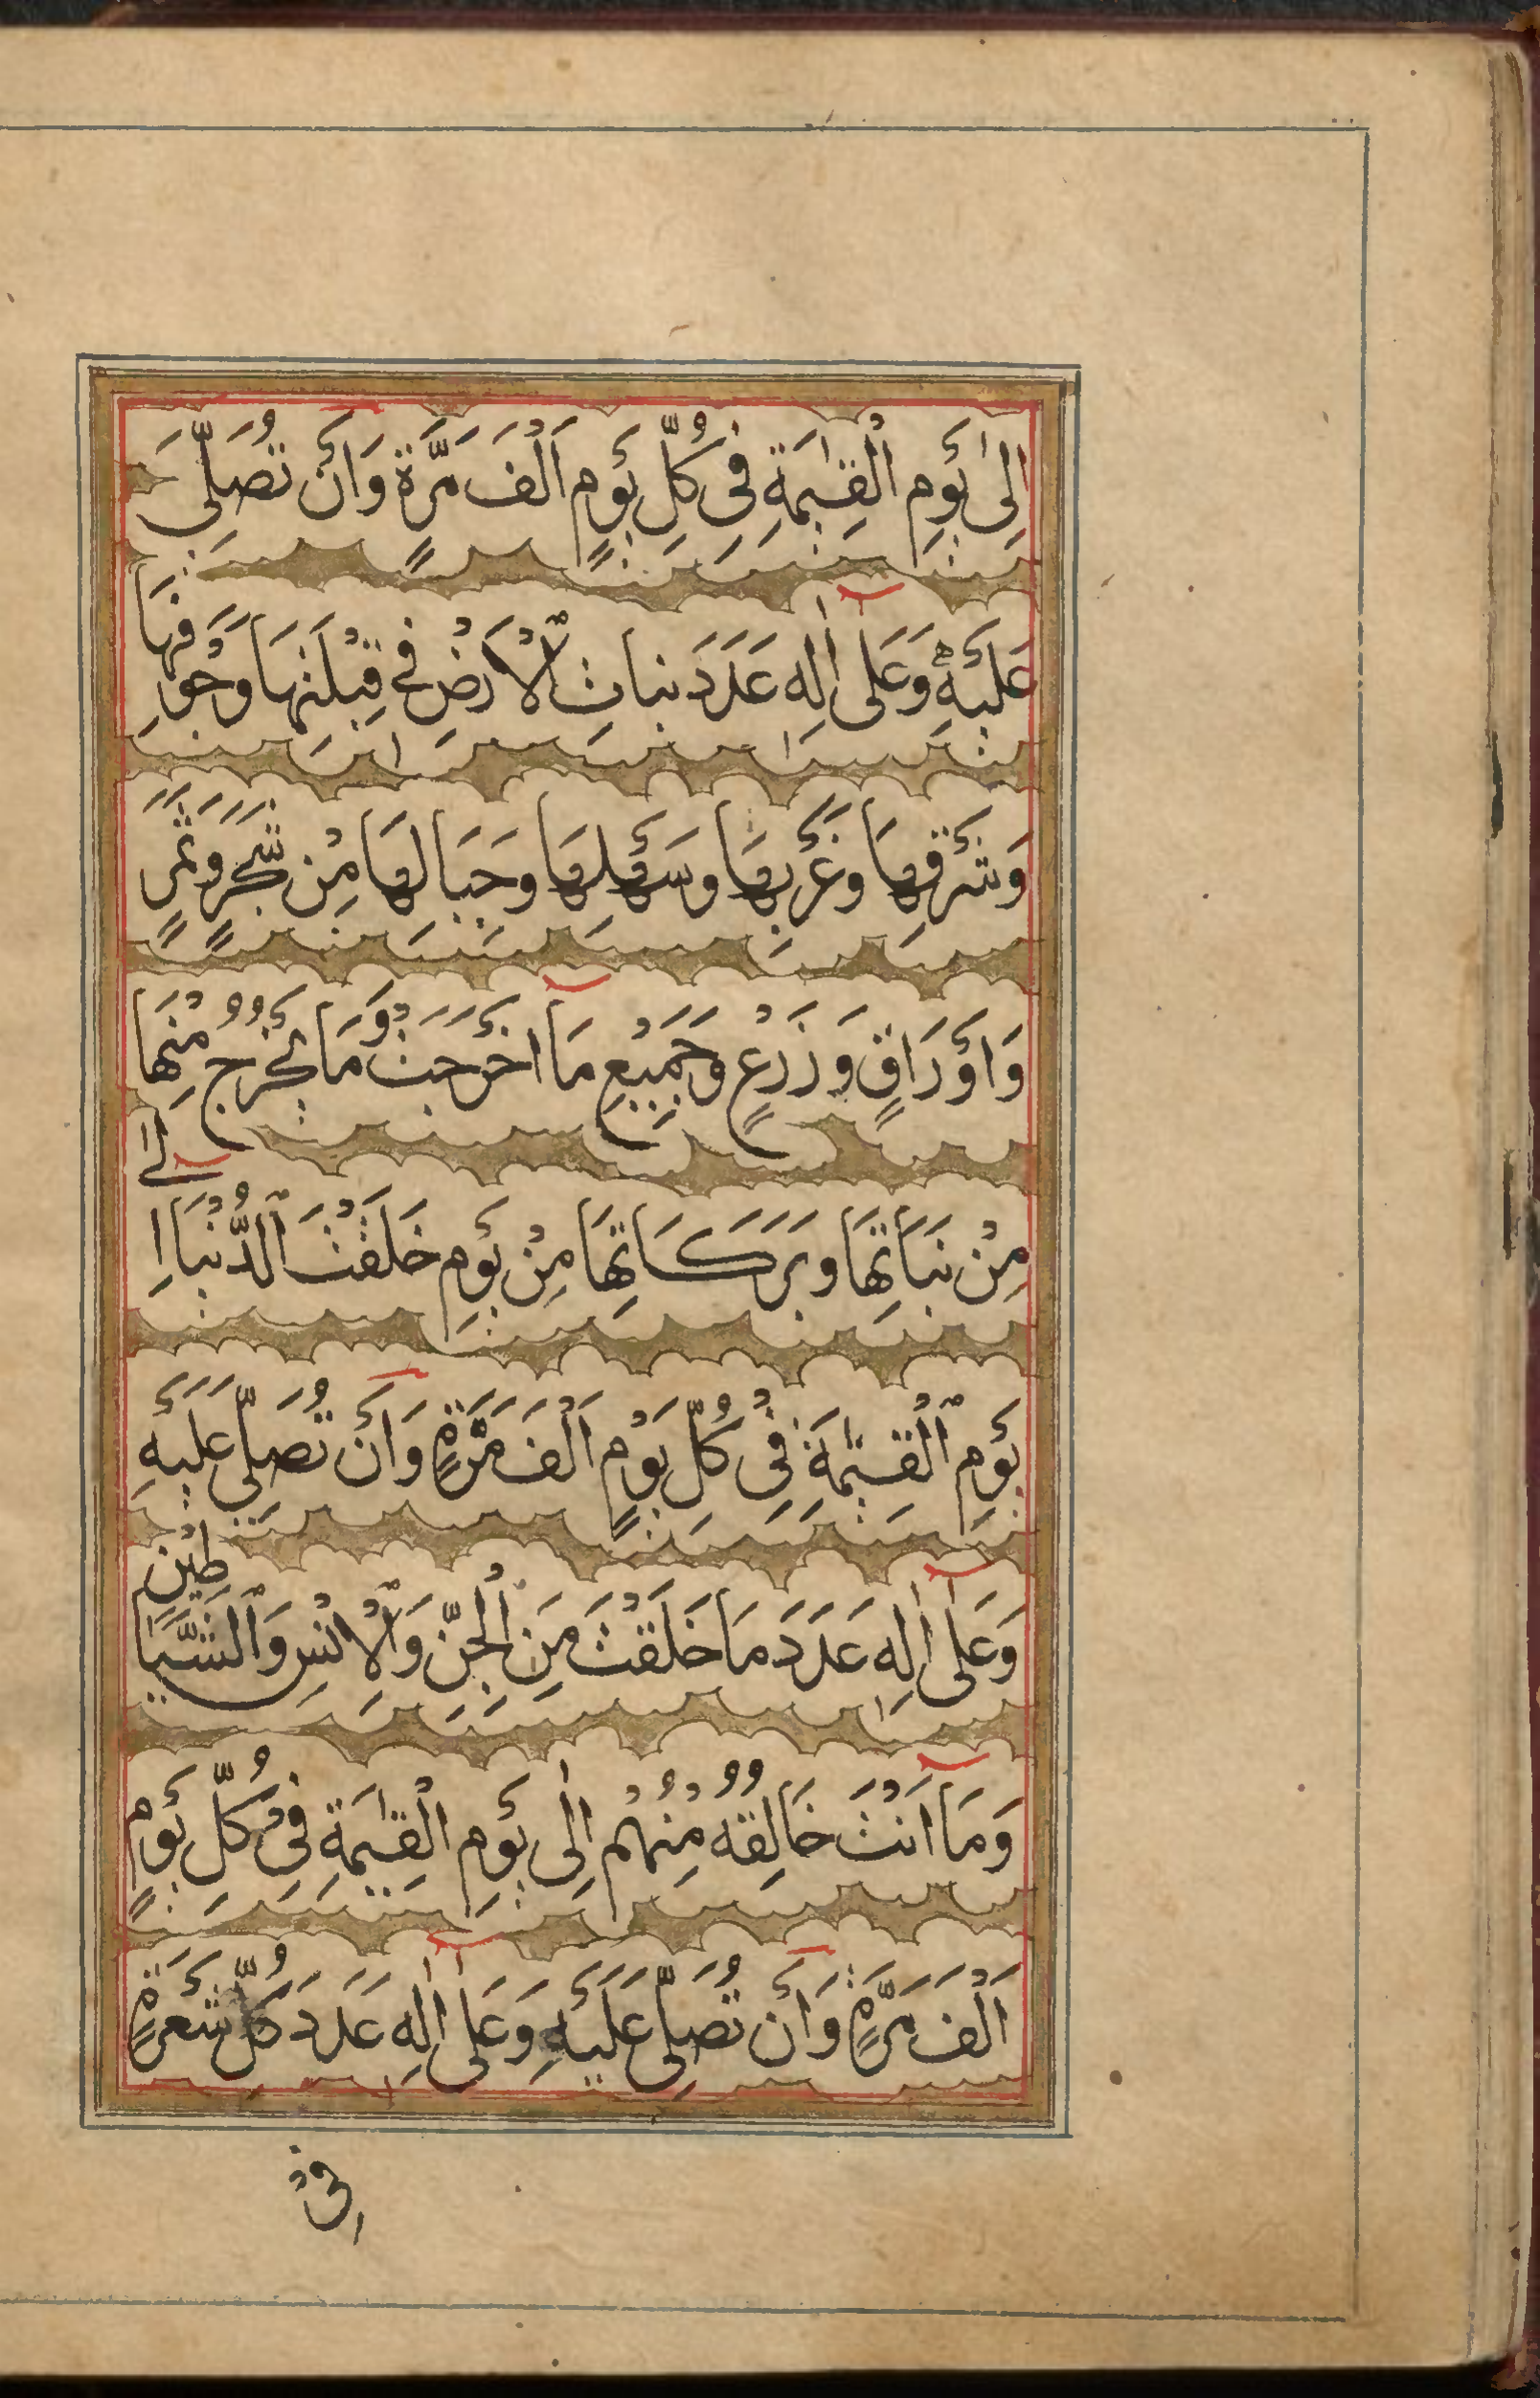 اِلٰى يَوْمِ الْقِيٰمَةِ فِى كُلِّ يَوْمٍ اَلْفَ مَرَّةٍ وَاَنْ تُصَلِّىَ
عَلَيْهِ وَعَلٰى اٰلِهٖ عَدَدَ نَبَاتِ الْاَرْضِ فِى قِبْلَتِهَا وَجَوْفِهَا
وَشَرْقِهَا وَغَرْبِهَا وَسَهْلِهَا وَجِبَالِهَا مِنْ شَجَرٍ وَثَمَرٍ
وَاَوْرَاقٍ وَزَرْعٍ وَجَمِيْعِ مَا اَخْرَجَتْ وَمَا يَخْرُجُ مِنْهَا
مِنْ نَبَاتِهَا وَبَرَكَاتِهَا مِنْ يَوْمِ خَلَقْتَ الدُّنْيَا اِلٰى
يَوْمِ الْقِيٰمَةِ فِىْ كُلِّ يَوْمٍ اَلْفَ مَرَّةٍ وَاَنْ تُصَلِّىَ عَلَيْهِ
وَعَلٰى اٰلِهٖ عَدَدَ مَا خَلَقْتَ مِنَ الْجِنِّ وَالْاِنْسِ وَالشَّيَاطِيْنِ
وَمَا اَنْتَ خَالِقُهُ مِنْهُمْ اِلٰى يَوْمِ الْقِيٰمَةِ فِىْ كُلِّ يَوْمٍ
اَلْفَ مَرَّةٍ وَاَنْ تُصَلِّىَ عَلَيْهِ وَعَلٰى اٰلِهٖ عَدَدَ كُلِّ شَعْرَةٍ
فِىْ